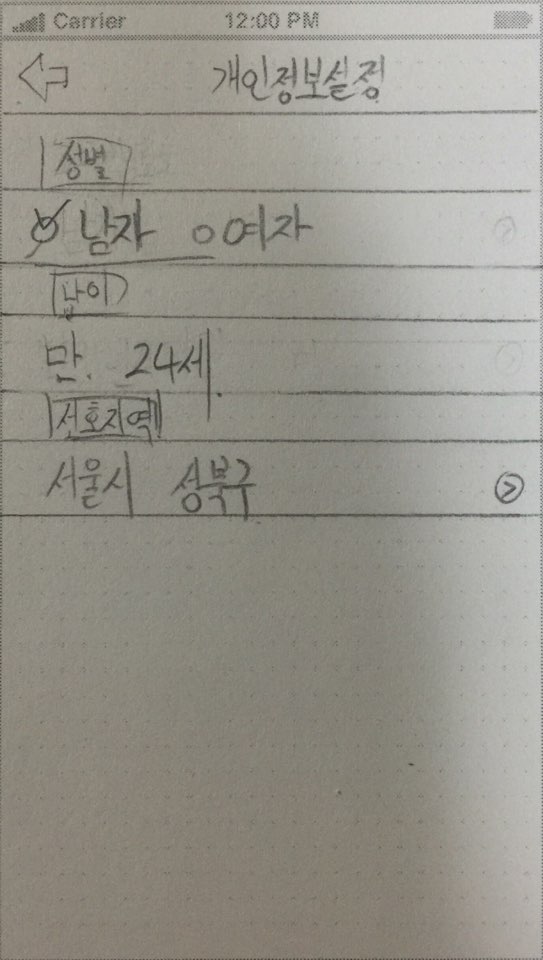 Carrier 12:00 PM
개인정보설정
성별
남자 여자
나이
만. 24세
선호지역
서울시 성북구